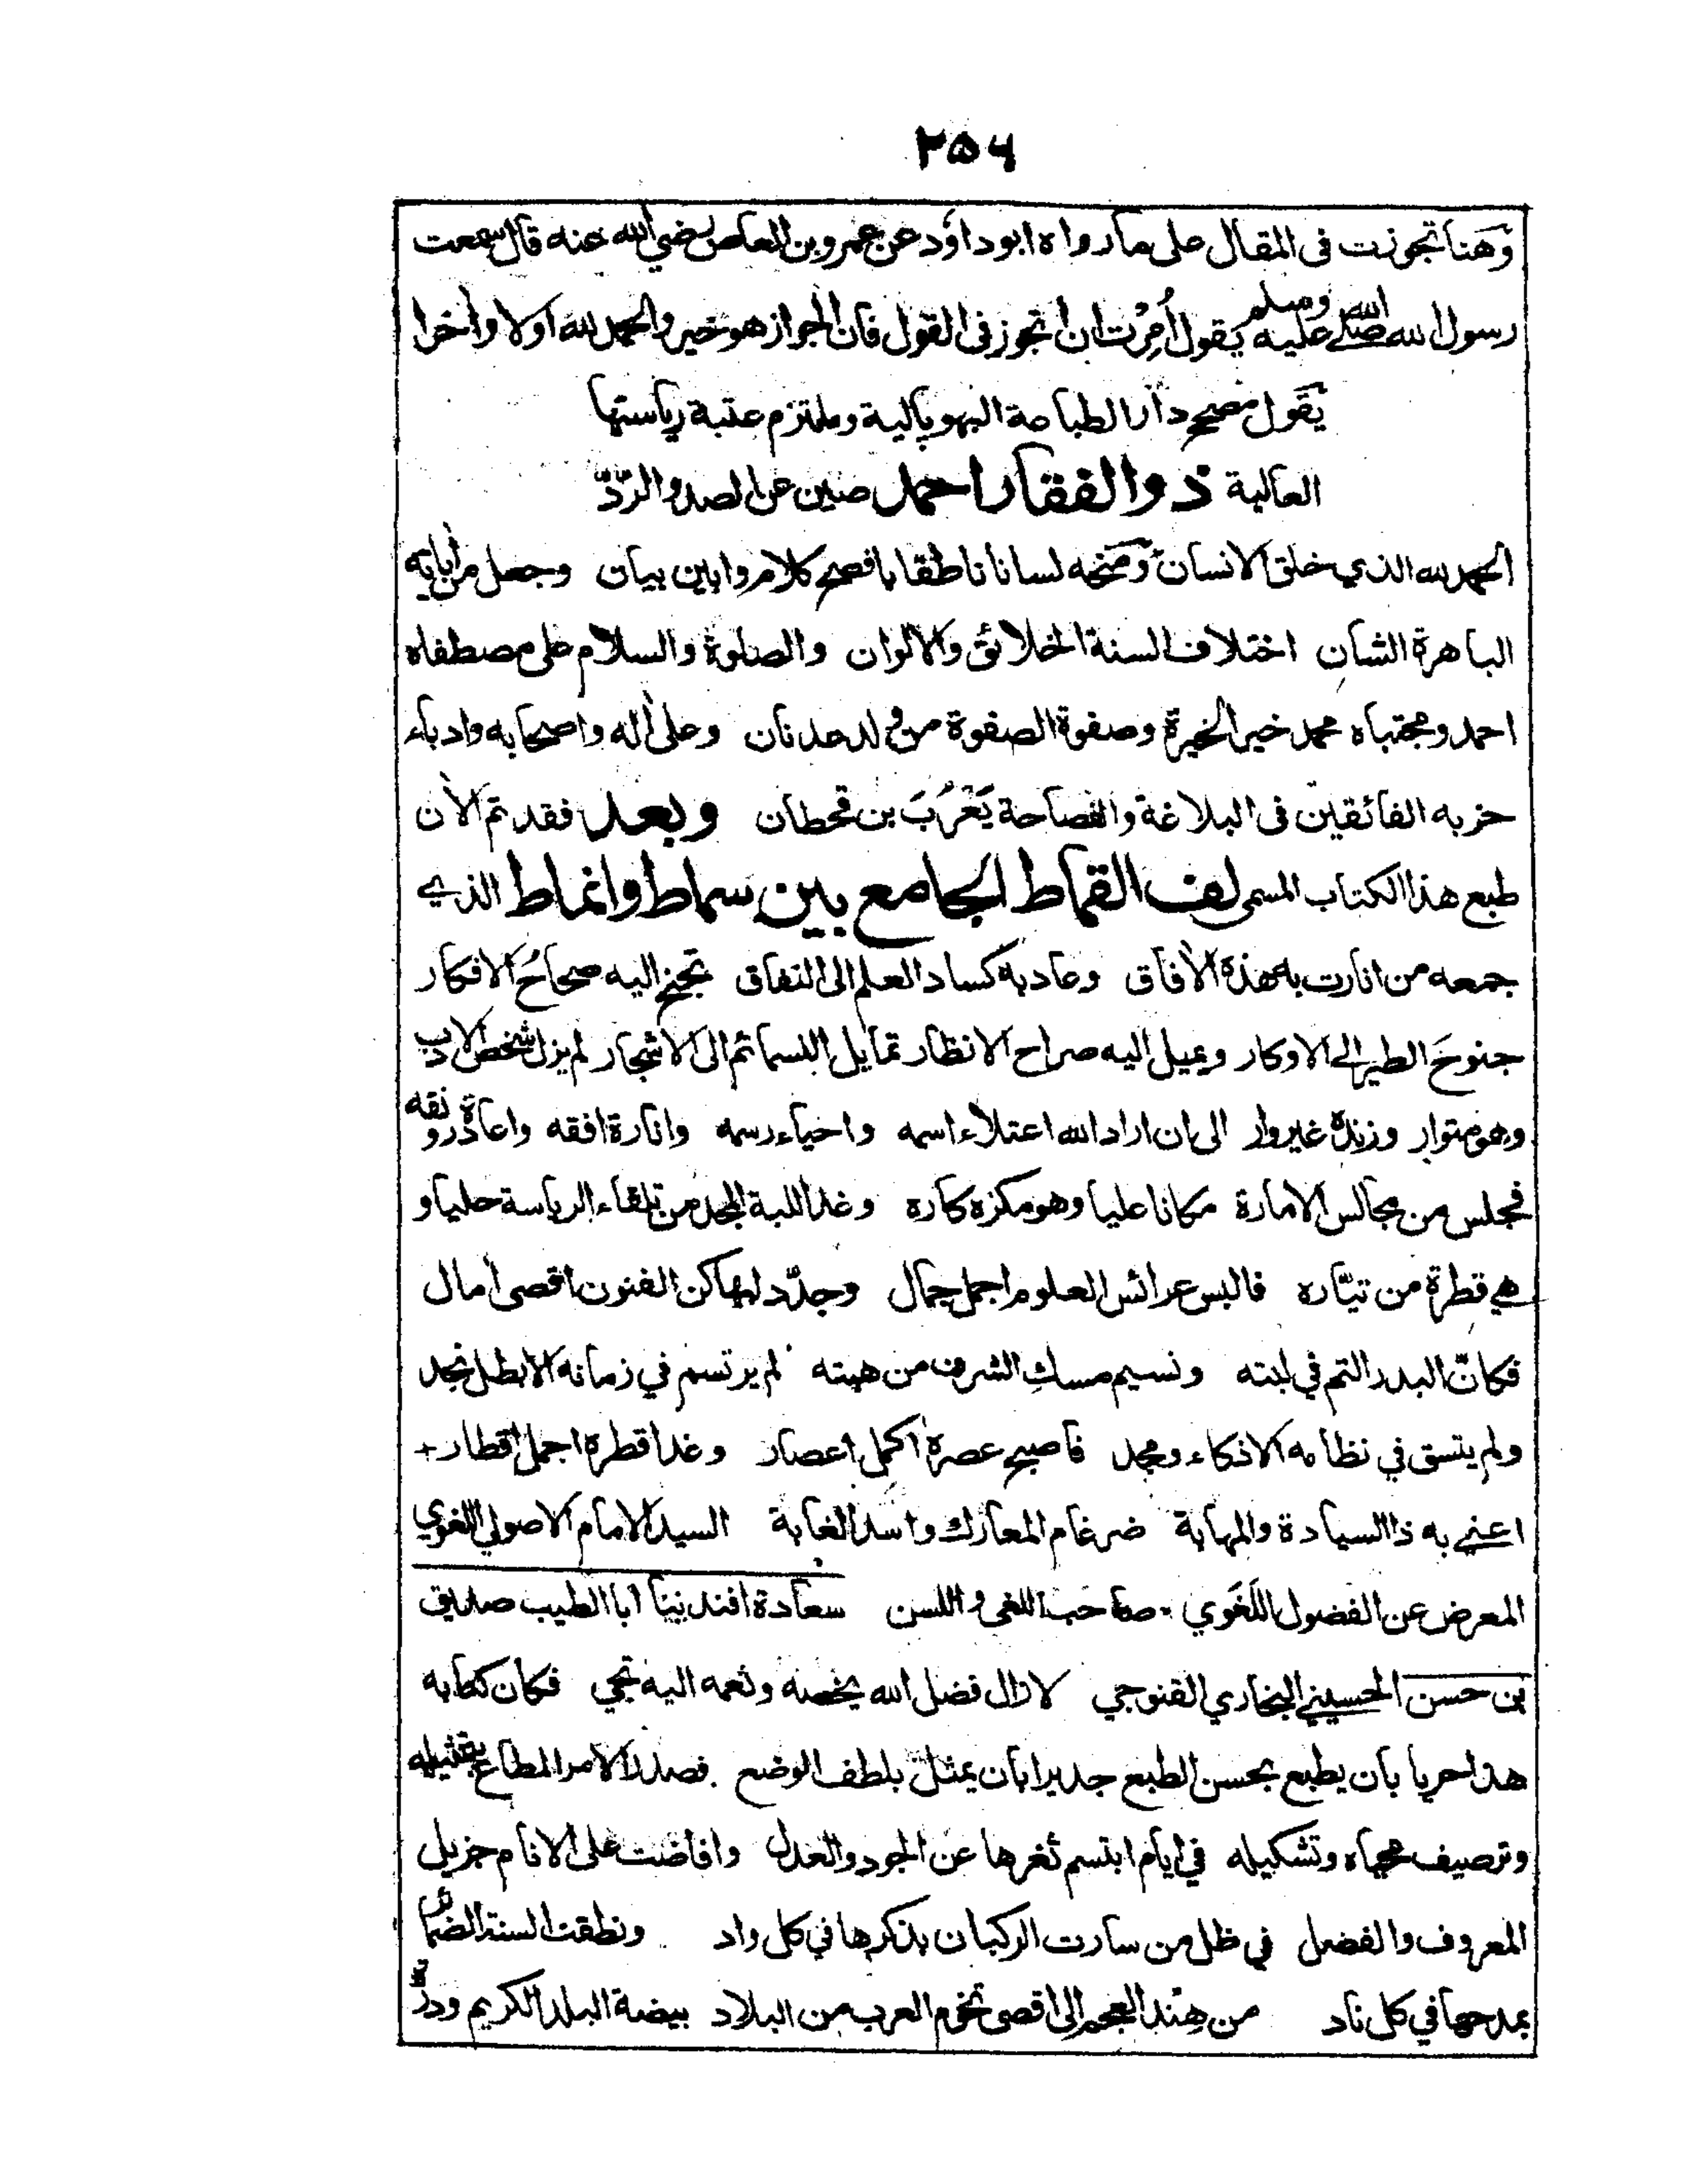 ۲۵۶
وهنا تجوزت فى المقال على ما رواه ابو داؤد عن عمرو بن العاص رضي الله عنه قال سمعت
رسول الله صلى الله عليه وسلم يقول أُمِرْت ان اتجوز فى القول فان الجواز هو خير والحمد لله اولا واٰخرا
يقول مصحح دار الطباعة البهوپالية وملتزم عتبة رياستها
العالية ذو الفقار احمد صين عن الصد والردّ
الحمد لله الذي خلق الانسان ومنحه لسانا ناطقا بافصح كلام وابين بيان وجعل من اٰياته
الباهرة الشان اختلاف السنة الخلائق والالوان والصلوة والسلام على مصطفاه
احمد ومجتباه محمد خير الخيرة وصفوة الصفوة من ولد عدنان وعلى اٰله واصحابه وادباء
حزبه الفائقين فى البلاغة والفصاحة يَعْرُبَ بن قحطان وبعد فقد تم الاٰن
طبع هذا الكتاب المسمى لف القماط الجامع بين سماط وانماط الذي
جمعه من انارت به هذه الاٰفاق وعاد به كساد العلم الى النفاق تجنح اليه صحاحُ الافكار
جنوحَ الطير الى الاوكار ويميل اليه صراح الانظار تمايل النسائم الى الاشجار لم يزل شخص الادب
وهو متوار وزنده غير وار الى ان اراد الله اعتلاء اسمه واحياء رسمه وانارة افقه واعادة رونقه
فجلس من مجالس الامارة مكانا عليا وهو مكزه كاره وغدا للبة المجد من تلقاء الرياسة حليا و
هي قطرة من تيّاره فالبس عرائس العلوم اجمل جمال وجدّد لهاكن الفنون اقصى اٰمال
فكانّ البدر التم في لبته ونسيم مسكِ الشرف من هبته لم يرتسم في زمانه الا بطل نجد
ولم يتسق في نظامه الا ذكاء ومجد فاصبح عصره اكمل اعصار وغدا قطره اجمل اقطار +
اعني به ذا السيادة والمهابة ضرغام المعارك واسد الغابة السيد الامام الاصولي اللغوي
المعرض عن الفضول اللَغَوي صاحب اللغى واللسن سعادة افندينا ابا الطيب صديق
بن حسن الحسيني البخاري القنوجي لا زال فضل الله يخصه ونعمه اليه تجي فكان كتابه
هذا حريا بان يطبع بحسن الطبع جديرا بان يمثل بلطف الوضع فصدر الامر المطاع بتمثيله
وترصيف محياه وتشكيله في ايام ابتسم ثغرها عن الجود والعدل وافاضت على الانام جزيل
المعروف والفضل في ظل من سارت الركبان بذكرها في كل واد ونطقت السنة الضمائر
بمدحها في كل ناد من هند العجم الى اقصى تخوم العرب من البلاد بيضة البلد الكريم